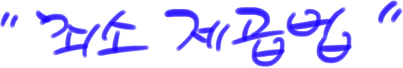 "최소 제곱법"